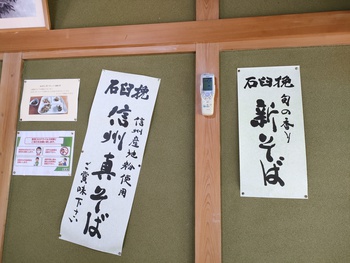 石臼挽
信州産地粉使用
信州真そば
ご賞味下さい
石臼挽
旬の香り
新そば